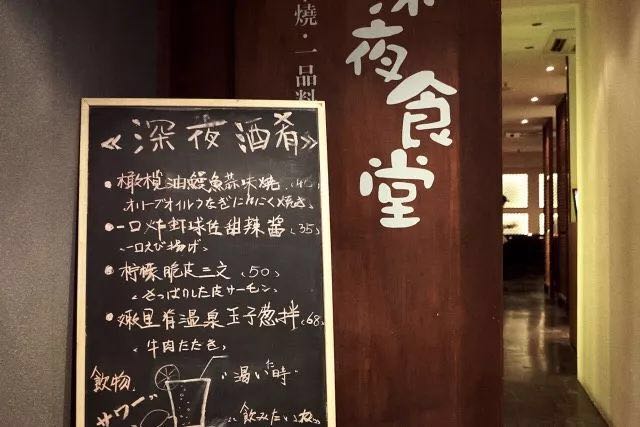 《深夜酒肴》
• 橄榄油鰻魚蒜味焼
オリーブオイルうなぎにんにく焼き
• 一口炸虾球佐甜辣醬 (35)
一口えび揚げ
• 柠檬脆皮三文 (50)
さっぱりした皮サーモン
• 嫩里肩温泉玉子葱拌 (68)
(牛肉たたき)
飲物
サワー
渇いた時
飲みたい
燒・一品料
深夜食堂